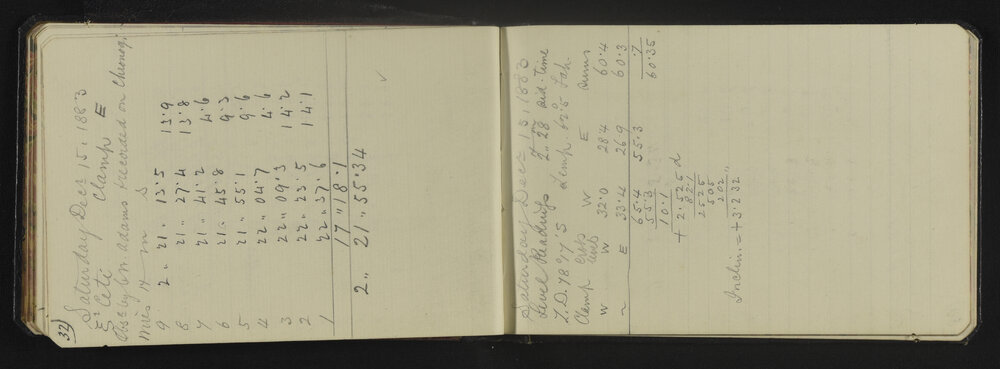 32
Saturday Dec 15. 1883
ξ² Ceti Clamp E
Obs by Mr Adams & recorded on Chronogr
Wires H m s
9 2 " 21 " 13.5 13.9
8 21 " 27.4 13.8
7 21 " 41.2 4.6
6 21 " 45.8 9.3
5 21 " 55.1 9.6
4 22 " 04.7 4.6
3 22 " 09.3 14.2
2 22 " 23.5 14.1
1 22 " 37.6
17 " 18.1
2 " 21 " 55.34
Saturday Dec 15, 1883
Level Readings 2 " 28 sid. time
Z.D. 78 97' S Temp. 62.5 Fah.
Clamp W E Sums
W W 32.0 28.4 60.4
" E 33.4 26.9 60.3
65.4 55.3 .7
55.3 60.35
10.1
+ 2.525 d
2525
505
202
Inclin. = + 3.232 "